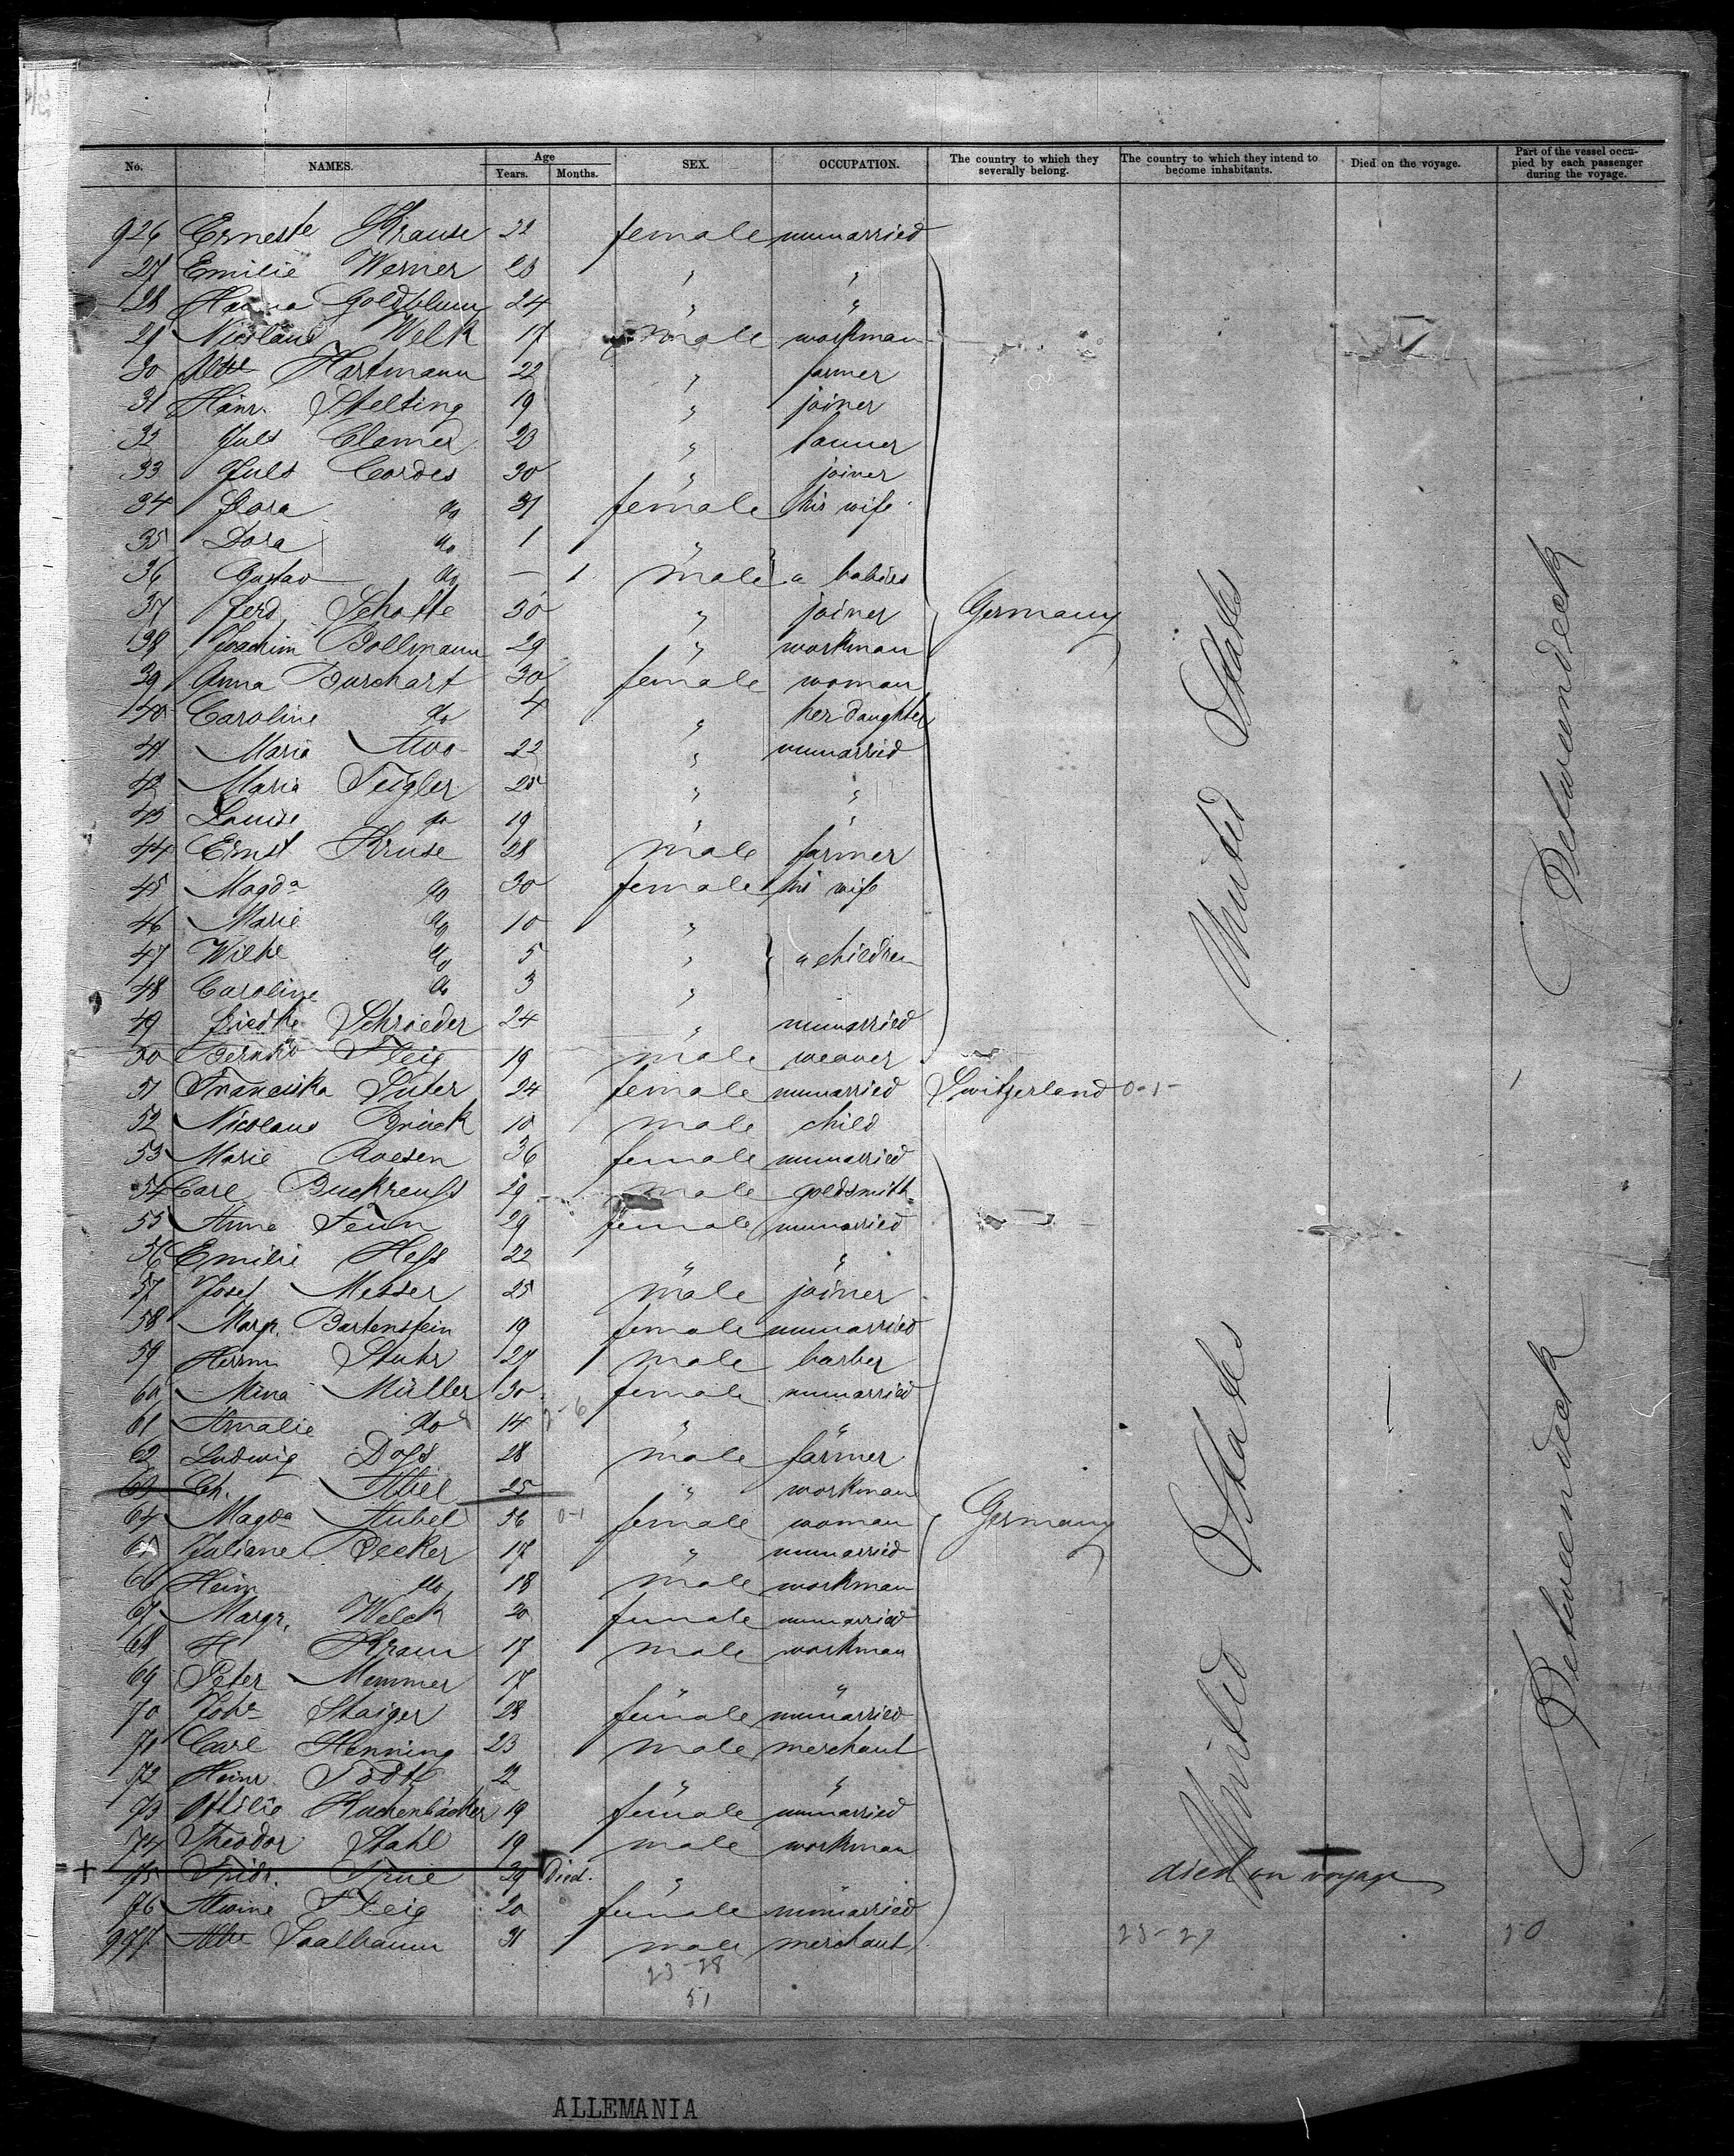 No. NAMES. Age Years. Months. SEX. OCCUPATION. The country to which they severally belong. The country to which they intend to become inhabitants. Died on the voyage. Part of the vessel occupied by each passenger during the voyage.
926 Erneste Krause 22 female unmarried
27 Emilie Werner 23 " "
28 Hanna Goldblum 24 " "
29 Nicolaus Welk 17 male workman
30 Hartmann 22 " farmer
31 Heinr. Stelting 19 " joiner
32 Juls Clamer 23 "
33 Juls Cordes 30 " joiner
34 Dora do 31 female his wife
35 Dora do 1 "
36 Gustav do — 1 male " babies
37 Ferd. Schotte 30 " joiner Germany
38 Joachim Bollmann 29 " workman
39 Anna Burchart 30 female woman
40 Caroline do 4 " her daughter
41 Maria 22 " unmarried
42 Maria Teigler 25 " "
43 Louise do 19 " "
44 Ernst Kruse 28 male farmer
45 Magda do 30 female his wife
46 Marie do 10 "
47 Wilhe do 5 " " children
48 Caroline do 3 "
49 Schroeder 24 " unmarried
50 Bernhd Fleig 19 male weaver
51 Franciska Suter 24 female unmarried Switzerland 0-1-
52 Nicolaus Brück 10 male child
53 Marie Roesen 36 female unmarried
54 Carl Buckreuss 29 male goldsmith
55 Anna 29 female unmarried
56 Emilie Hess 22 " "
57 Josef Messer 25 male joiner
58 Margr. Bartenstein 19 female unmarried
59 Herrm Stuhr 27 male barber
60 Mina Müller 30 female unmarried
61 Amalie do 14 " "
62 Ludwig Doss 28 male farmer
63 Ch. Abel 25 " workman
64 Magda Aubel 56 0-1 female woman Germany
65 Juliane Becker 17 " unmarried
66 Heinr do 18 male workman
67 Margr. Welck 20 female unmarried
68 H Kram 17 male workman
69 Peter Memmer 17 " "
70 Johe Staiger 23 female unmarried
71 Carl Henning 23 male merchant
72 Heinr. Tödt 22 " "
73 Ottilie Kuchenbäcker 19 female unmarried
74 Theodor Stahl 19 male workman
75 Fridr. True 39 Died. " died on voyage
76 Alwine Fleig 20 female unmarried
977 Saalbaum 31 male merchant 23-27 50
23-28
51
United States
United States
Betweendeck
Betweendeck
ALLEMANIA